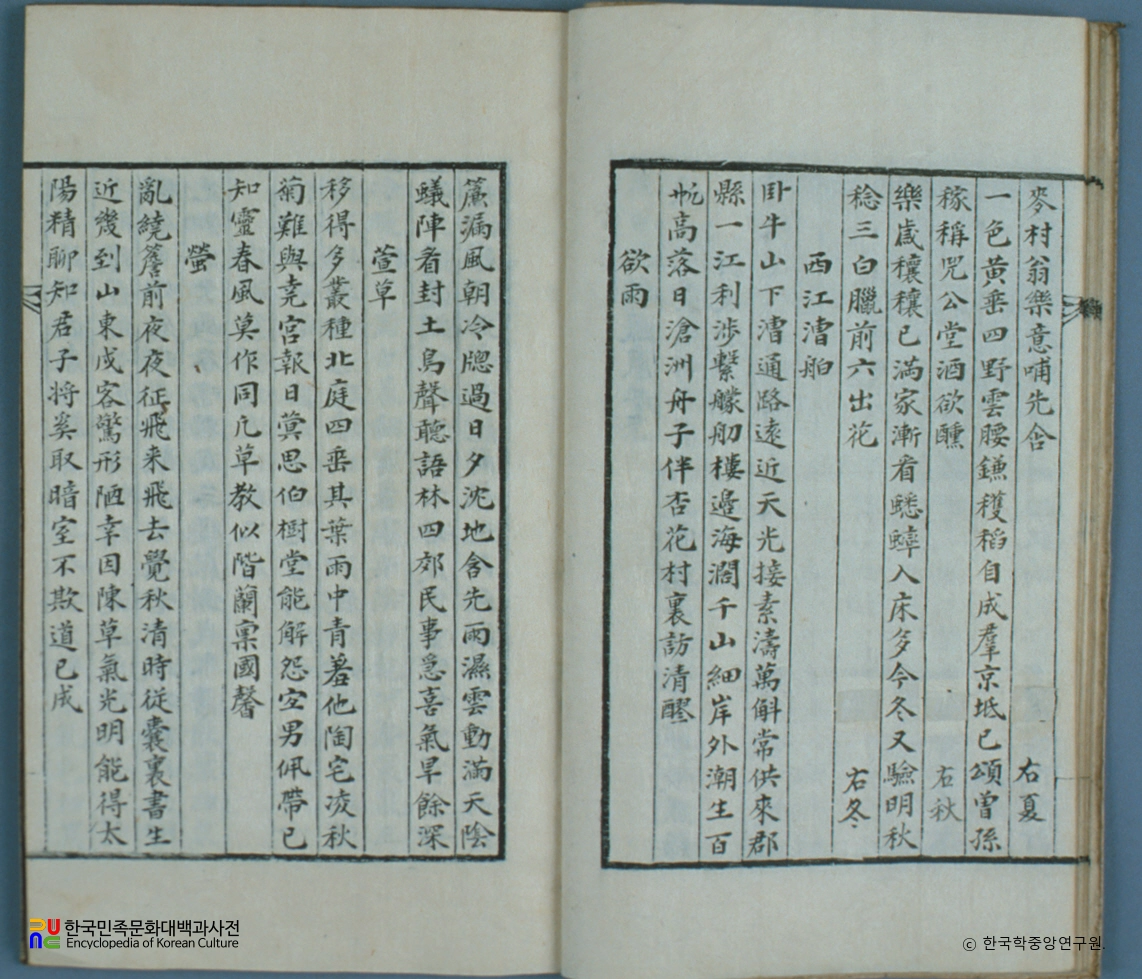 麥村翁樂意哺先含 右夏
一色黃垂四野雲腰鎌穫稻自成羣京坻已頌曾孫
稼稱兕公堂酒欲醺 右秋
樂歲穰穰已滿家漸看蟋蟀入床多今冬又驗明秋
稔三白臘前六出花 右冬
西江漕舶
卧牛山下漕通路遠近天光接素濤萬斛常供來郡
縣一江利涉繫艨舠樓邊海濶千山細岸外潮生百
帆高落日滄洲舟子伴杏花村裏訪清醪
欲雨
簾漏風朝冷牕過日夕沈地含先雨濕雲動滿天陰
蟻陣看封土鳥聲聽語林四郊民事急喜氣旱餘深
萱草
移得多叢種北庭四垂其葉雨中青羞他陶宅凌秋
菊難與堯宮報日蓂思伯樹堂能解怨宓男佩帶已
知靈春風莫作同凡草敎似階蘭稟國馨
螢
亂繞簷前夜夜征飛来飛去覺秋清時従囊裏書生
近幾到山東戍客驚形陋幸因陳草氣光明能得太
陽精聊知君子将奚取暗室不欺道已成
한국민족문화대백과사전
Encyclopedia of Korean Culture
© 한국학중앙연구원.